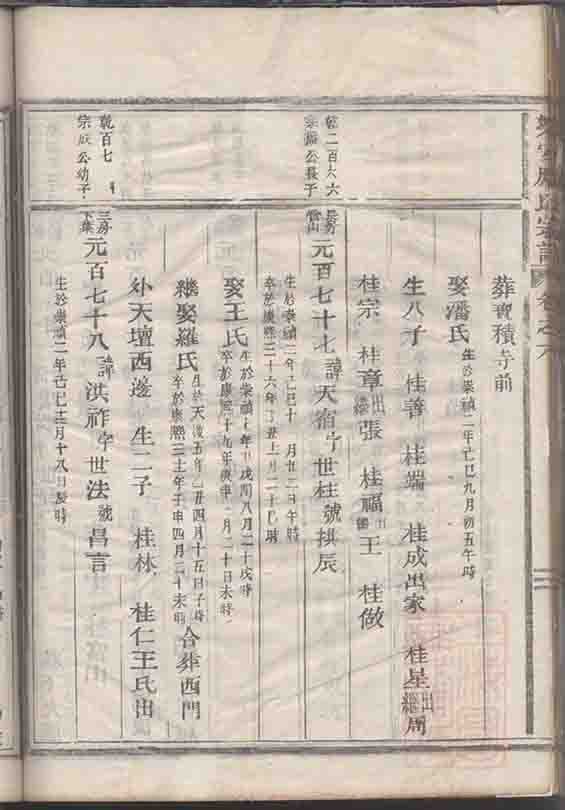 宗譜 卷之六
葬寶積寺前
娶潘氏 生於崇禎二年己巳九月初五午時
生八子 桂善 桂端 桂成出家 桂星出繼周
桂宗 桂章出繼張 桂福出繼王 桂做
乾二百六六
宗振公長子
長房
元百七十七 諱天宿字世柱號拱辰
生於崇禎二年己巳十 月廿二日午時
卒於康熙三十六年丁丑 月二十巳時
娶王氏 生於崇禎 年戊寅八月二十戌時
卒於康熙十九年庚申 月二十日未時
繼娶羅氏 生於天啟五年乙丑四月十五日子時
卒於康熙三十一年壬申四月二十未時 合葬西門
外天壇西邊 生二子 桂林 桂仁王氏出
乾百七
宗 公幼子
三房
下葉
元百七十八 諱洪祚字世法號昌言
生於崇禎二年己巳 月十八日辰時